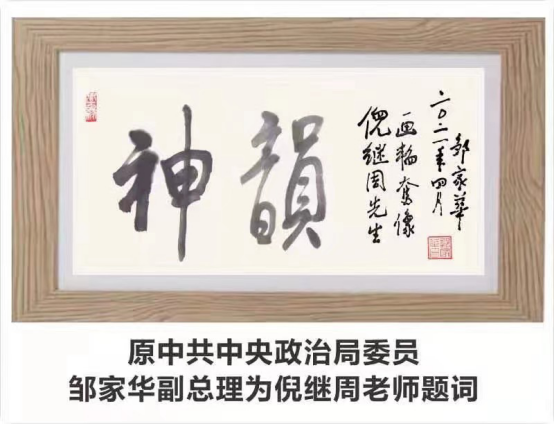 神韻
倪继周先生
画韜奮像
二〇二一年四月
邹家華
原中共中央政治局委员
邹家华副总理为倪继周老师题词